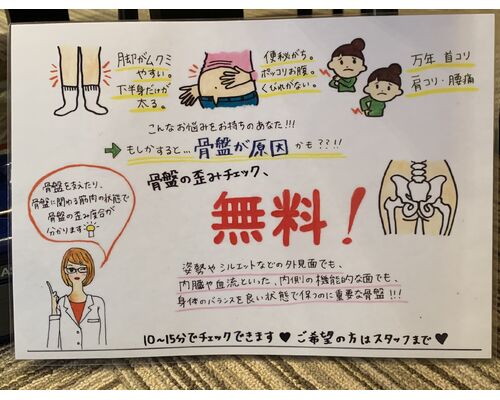 脚がムクミ
やすい。
下半身だけが
太る。
便秘がち。
ポッコリお腹。
くびれがない。
万年 首コリ
肩コリ・腰痛
こんなお悩みをお持ちのあなた!!!
→ もしかすると… 骨盤が原因 かも??!!
骨盤の歪みチェック、
無料!
骨盤を支えたり、
骨盤に関わる筋肉の状態で
骨盤の歪み度合が
分かります
姿勢やシルエットなどの外見面でも、
内臓や血流といった、内側の機能的な面でも、
身体のバランスを良い状態で保つのに重要な骨盤!!!
10~15分でチェックできます♥ ご希望の方はスタッフまで♥